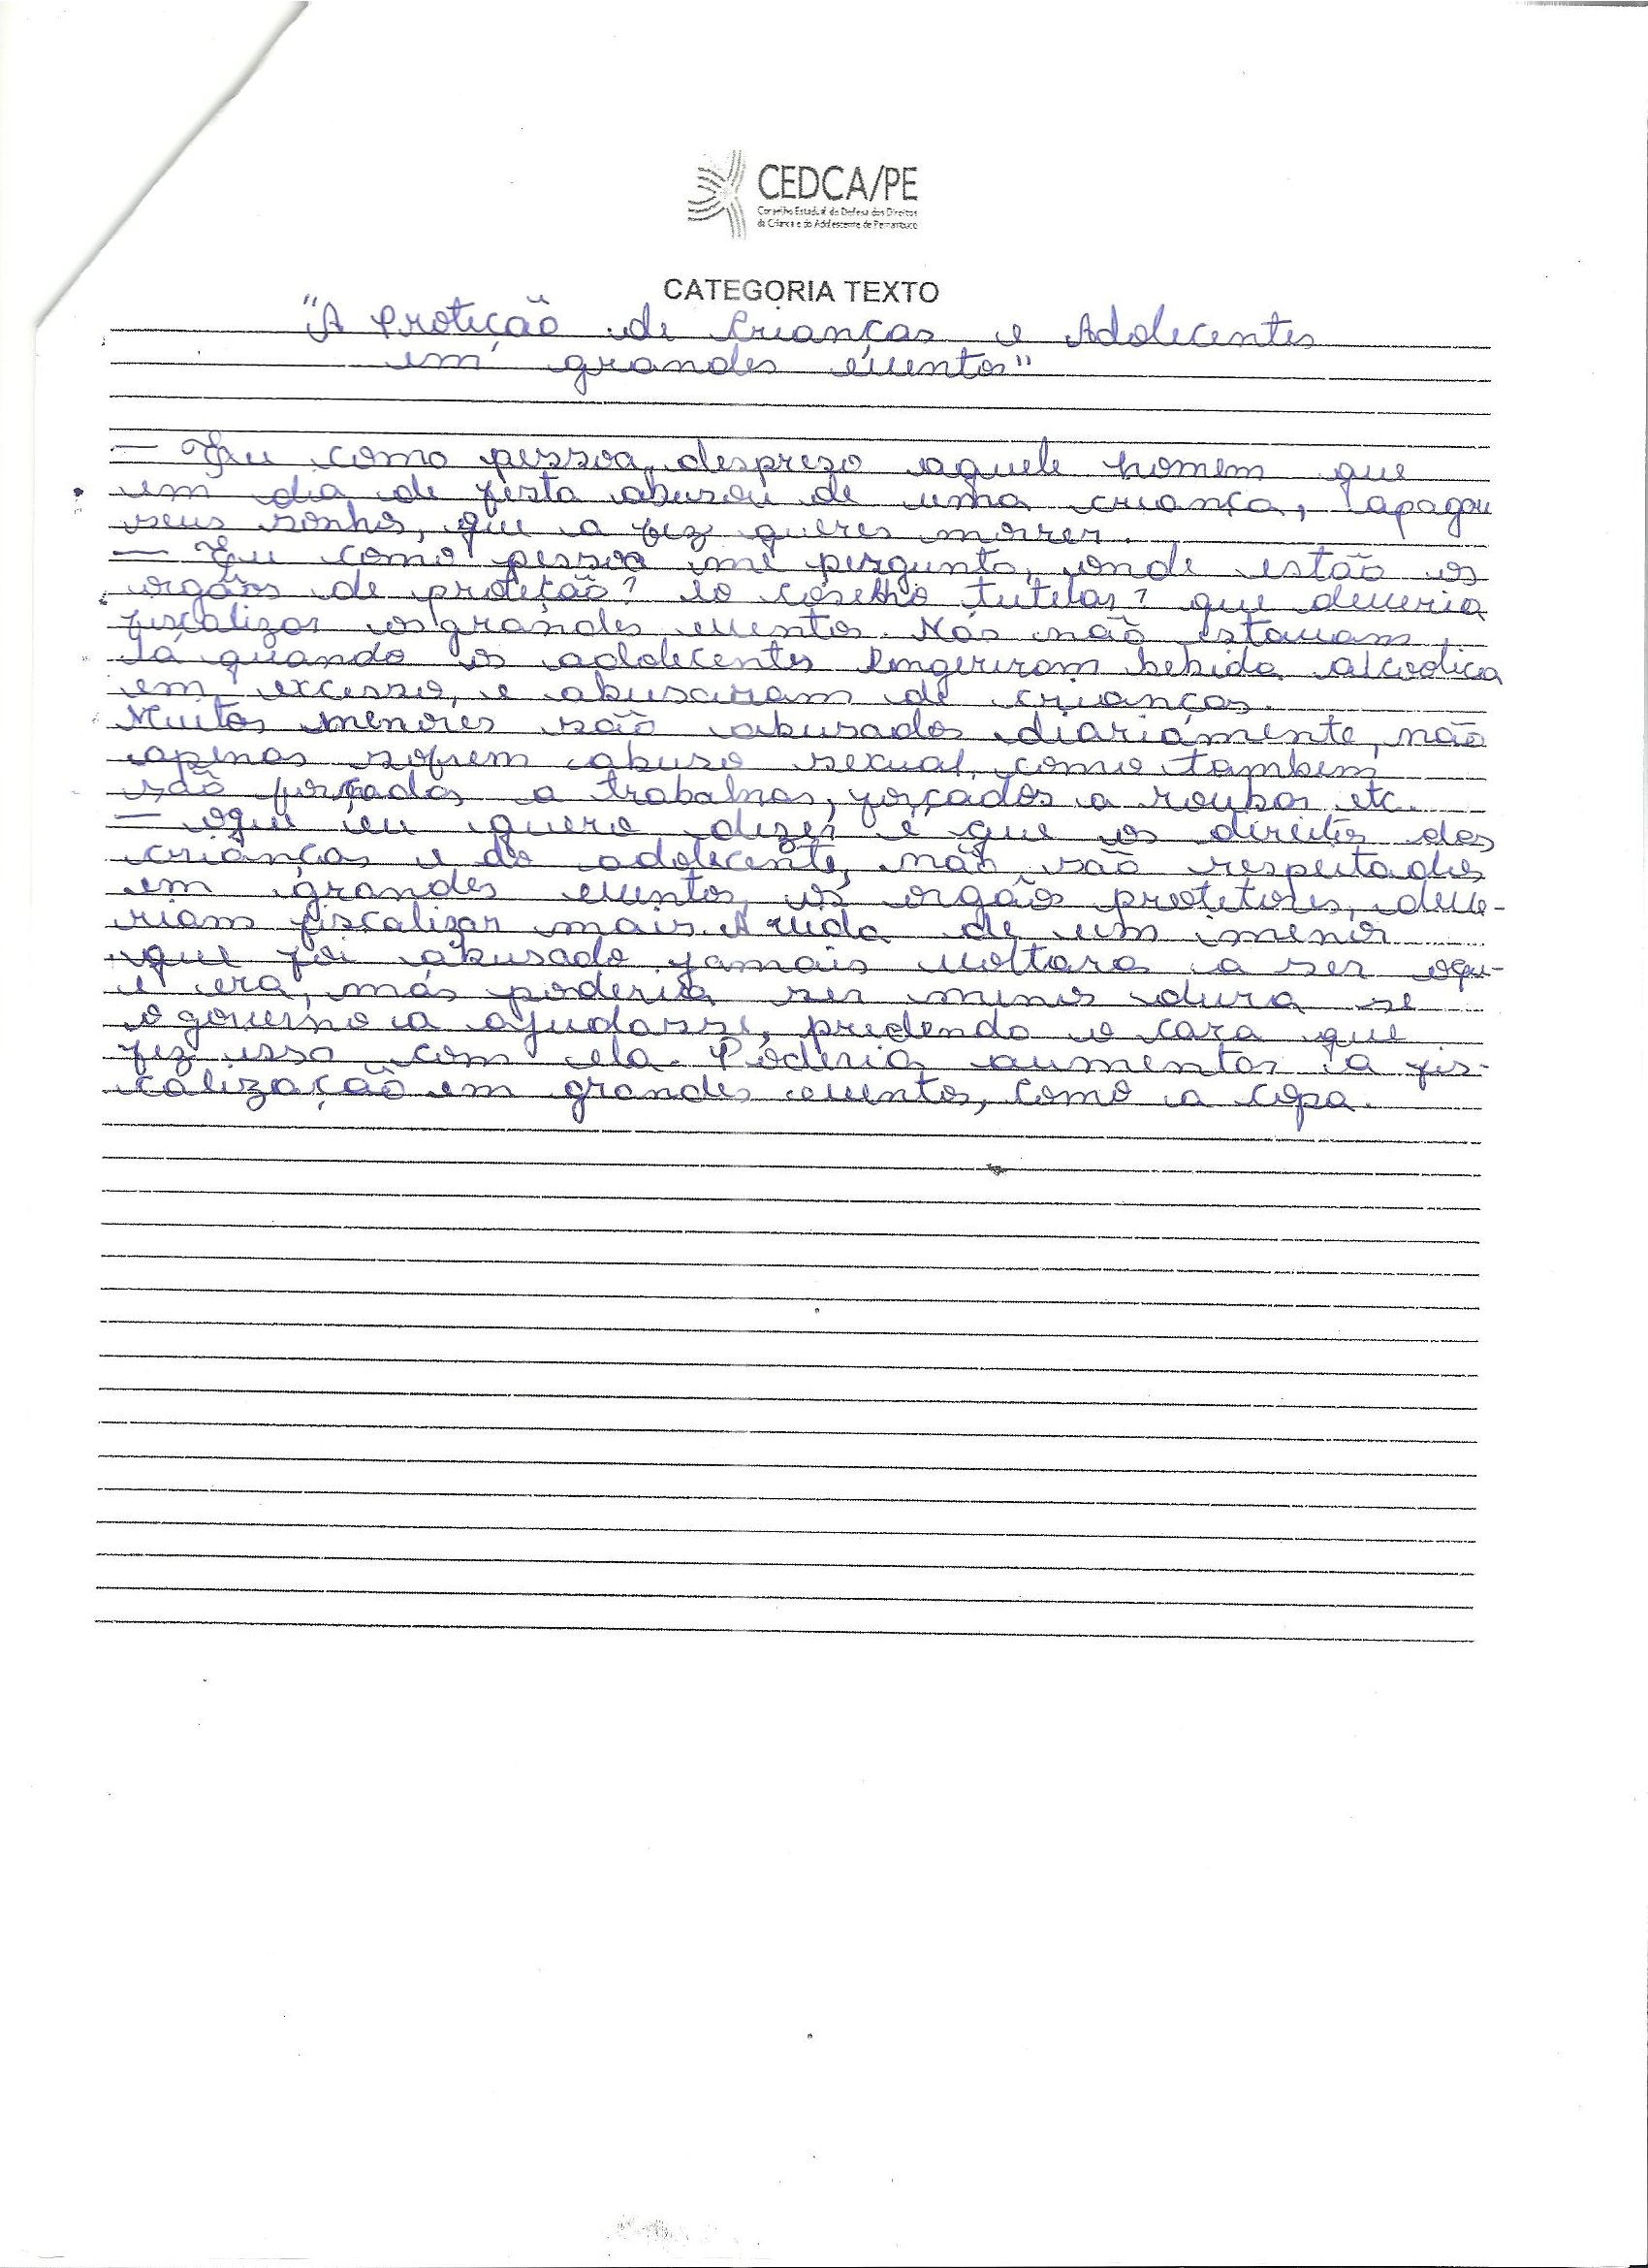 CEDCA/PE
Conselho Estadual de Defesa dos Direitos
da Criança e do Adolescente de Pernambuco
CATEGORIA TEXTO
"A Proteção de Crianças e Adolecentes
em grandes eventos"
— Eu como pessoa, desprezo aquele homem que
em dia de festa abusou de uma criança, apagou
seus sonhos, que a fez querer morrer.
— Eu como pessoa me pergunto, onde estão os
orgãos de proteção? o coselho tutelar? que deveria
fiscalizar os grandes eventos. Nós não estavam
lá quando os adolecentes ingeriram bebida alcoolica
em excesso, e abusaram de crianças.
Muitos menores são abusados diariamente, não
apenas sofrem abuso sexual, como tambem
são forçados a trabalhar, forçados a roubar etc.
— oque eu quero dizer é que os direitos das
crianças e do adolecente, não são respeitados
em grandes eventos, os orgãos protetores, deve-
riam fiscalizar mais. A vida de um menor
que foi abusado jamais voltara a ser oqu-
e era, mas poderia ser menos dura se
o governo a ajudasse, predendo o cara que
fez isso com ela. Poderia aumentar a fis-
calização em grandes eventos, como a copa.